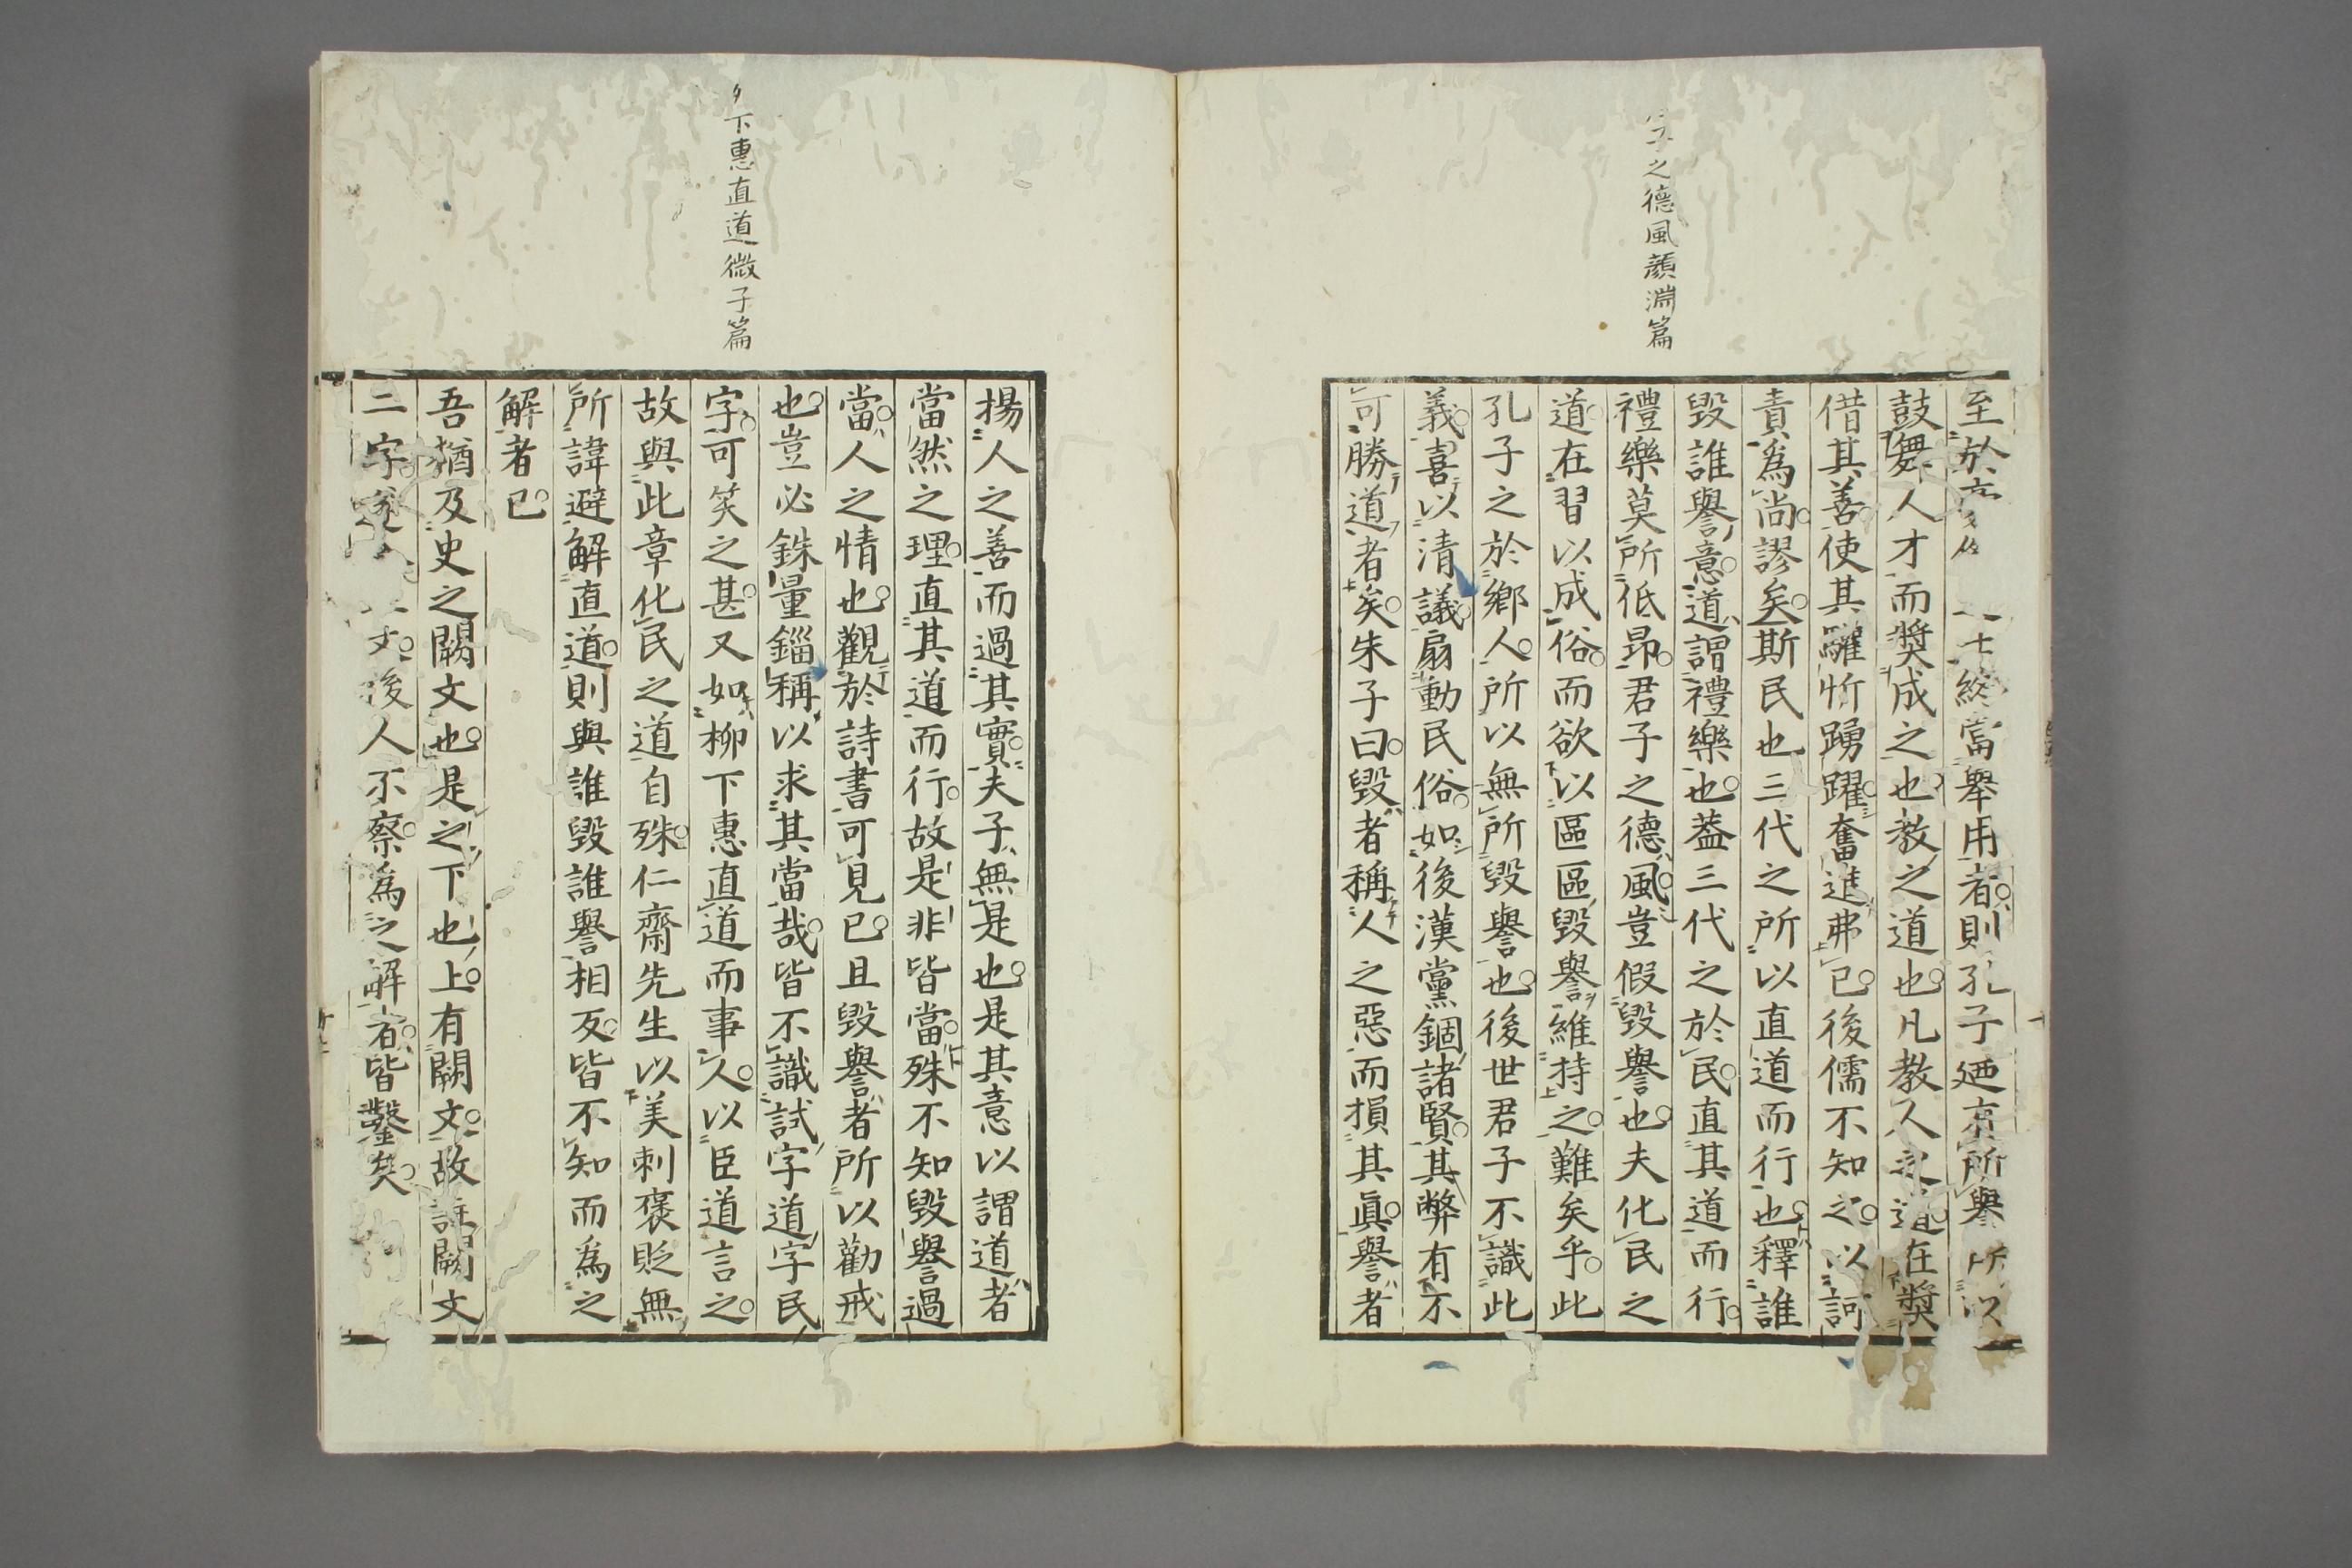 子之德風顏淵篇
至於 士終當舉用者則孔子廼亦所擧所以
鼓舞人才而奬成之也教之道也凡教人之道在奬
借其善使其驩忻踴躍奮進弗已後儒不知之以訶
責爲尚謬矣斯民也三代之所以直道而行也釋誰
毀誰譽意道謂禮樂也葢三代之於民直其道而行
禮樂莫所低昻君子之德風豈假毀譽也夫化民之
道在習以成俗而欲以區區毀譽維持之難矣乎此
孔子之於鄉人所以無所毀譽也後世君子不識此
義喜以清議扇動民俗如後漢黨錮諸賢其弊有不
可勝道者矣朱子曰毀者稱人之惡而損其眞譽者
下惠直道微子篇
揚人之善而過其實夫子無是也是其意以謂道者
當然之理直其道而行故是非皆當殊不知毀譽過
當人之情也觀於詩書可見已且毀譽者所以勸戒
也豈必銖量錙稱以求其當哉皆不識試字道字民
字可笑之甚又如柳下惠直道而事人以臣道言之
故與此章化民之道自殊仁齋先生以美刺褒貶無
所諱避解直道則與誰毀誰譽相反皆不知而爲之
解者已
吾猶及史之闕文也是之下也上有闕文故註闕文
二字 文後人不察爲之解者皆鑿矣